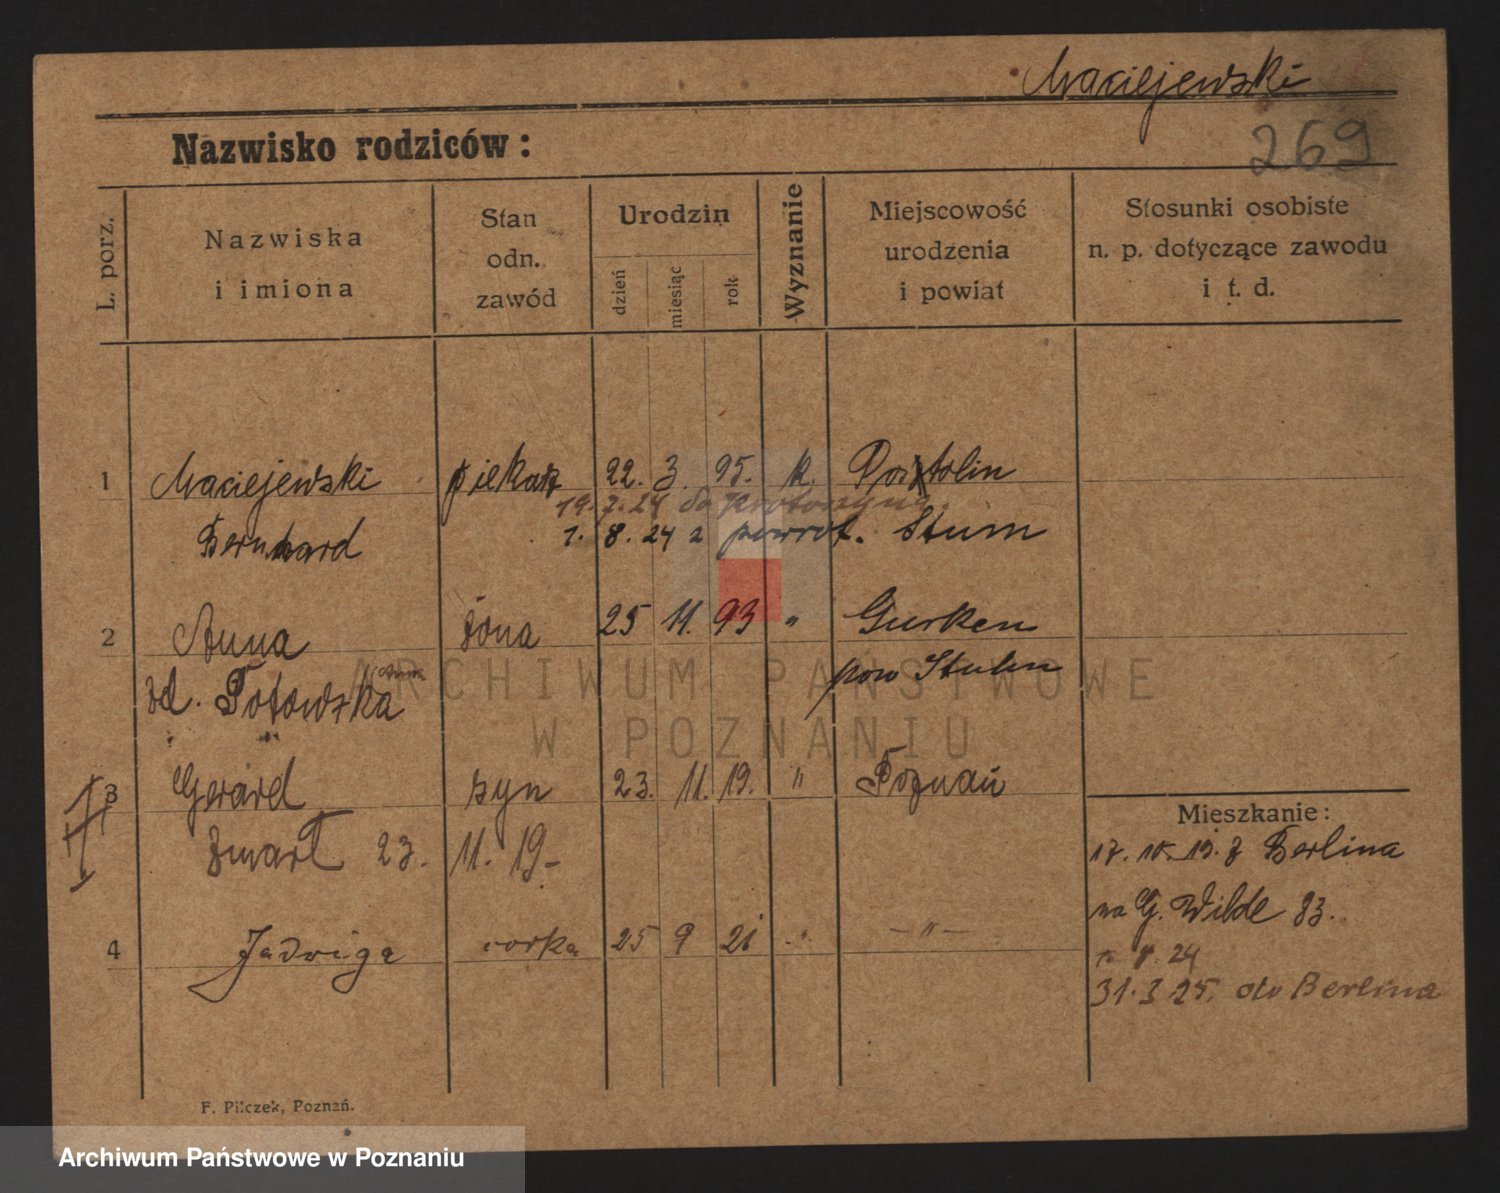 Maciejewski
269
Nazwisko rodziców:
L. porz.
Nazwiska
i imiona
Stan
odn.
zawód
Urodzin
dzień
miesiąc
rok
Wyznanie
Miejscowość
urodzenia
i powiat
Stosunki osobiste
n. p. dotyczące zawodu
i t. d.
1 Maciejewski piekarz 22. 3. 95. k. Portolin
19. 7. 24 do Krotoszyna.
Bernhard 1. 8. 24 z powrot. Stum
2 Anna żona 25 11. 93 " Gurken
zd. Totowska pow Stuhm
3 Gerard syn 23. 11. 19. " Poznań
zmarł 23. 11. 19-
4 Jadwiga corka 25 9 21 -"- -"-
Mieszkanie:
17. 10. 19. z Berlina
na G. Wilde 83.
8. 24
31.3 25. do Berlina
F. Pilczek, Poznań.
ARCHIWUM PAŃSTWOWE
W POZNANIU
Archiwum Państwowe w Poznaniu